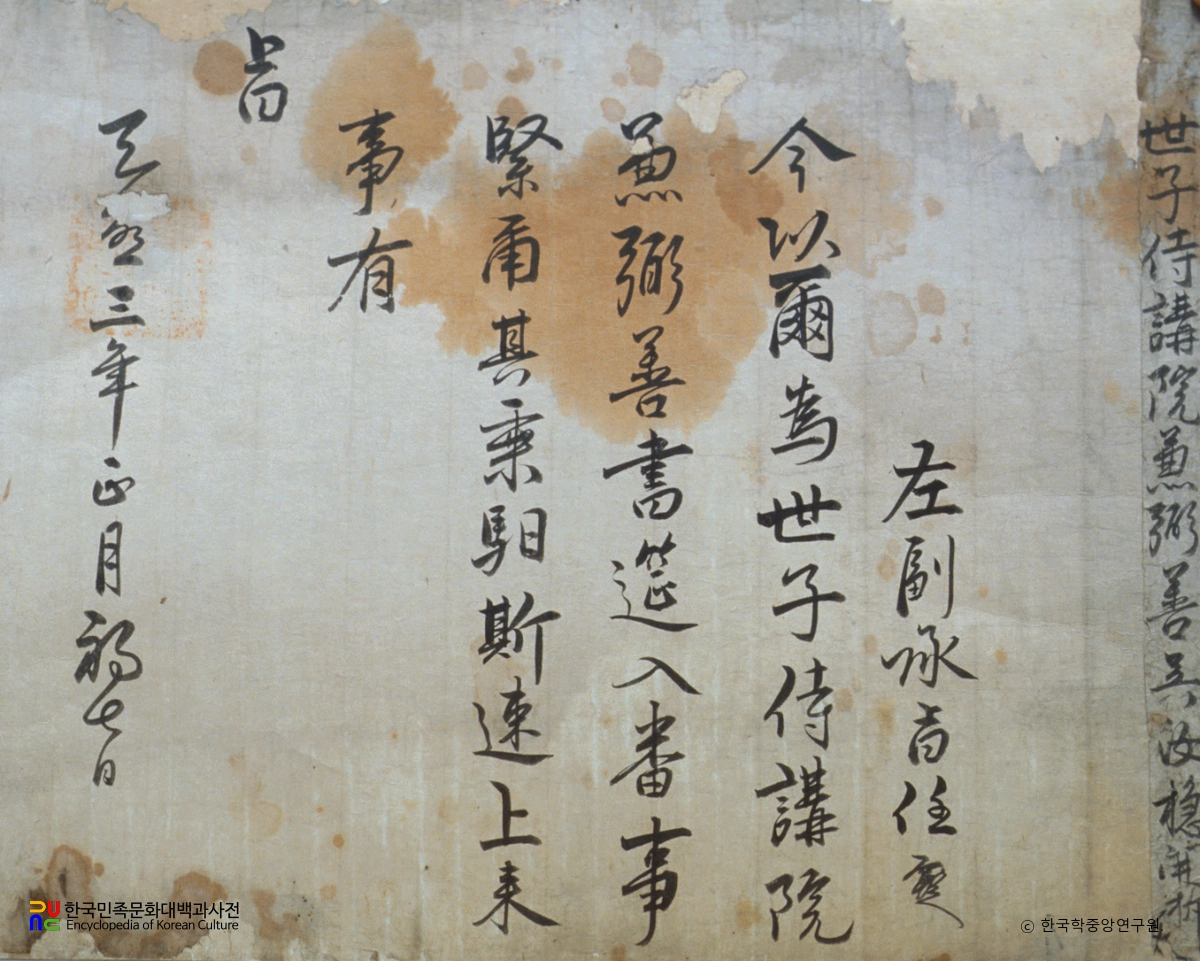 世子侍講院兼弼善吳汝穩開坼
左副承旨任
今以爾爲世子侍講院
兼弼善書筵入番事
緊爾其乘馹斯速上來
事有
旨
天啓三年正月初七日
한국민족문화대백과사전
Encyclopedia of Korean Culture
ⓒ 한국학중앙연구원